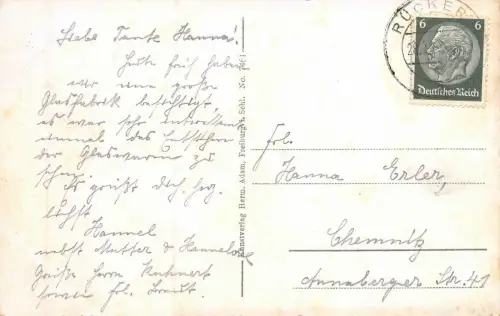 Liebe Tante Hanna!
Heute früh haben
wir eine große
Glasfabrik besichtigt,
es war sehr interessant
einmal das Entstehen
der Glaswaren zu
sehen.
Es grüßt dich herz-
lichst
Hannel
nebst Mutter & Hannelore
Grüße Herrn Kuhnert
sowie Frl.
Kunstverlag Herm. Adam, Freiburg i. Schl. No.
RÜCKER
6 6
Deutsches Reich
Frl.
Hanna Erler
Chemnitz
Annaberger Str. 41